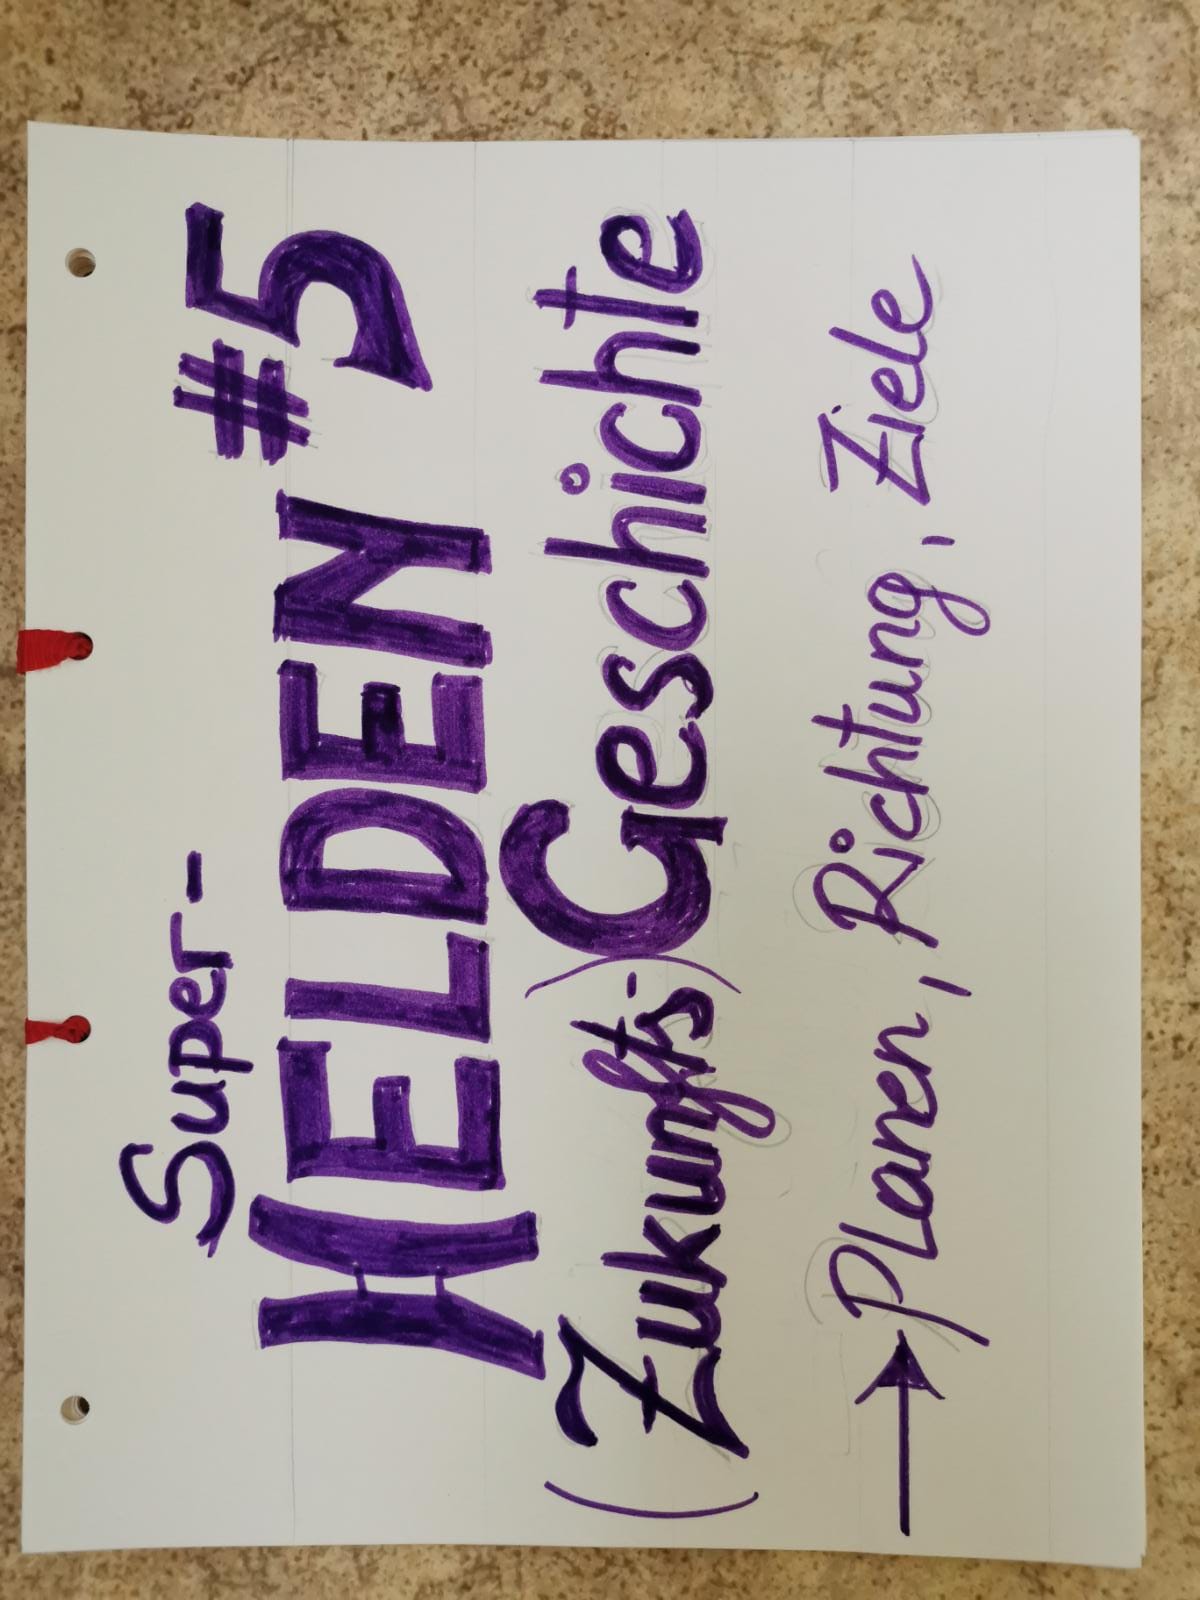 Super-
HELDEN #5
(Zukunfts-)Geschichte
→ Planen, Richtung, Ziele